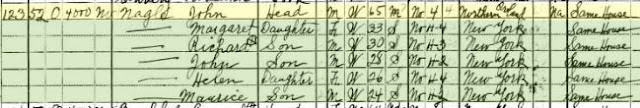 123 52 O 4000 No John Head M W 65 M No 4 Northern Na Same House
Margaret Daughter F W 33 S No H-4 New York Same House
Richard Son M W 30 S No H-3 New York Same House
John Son M W 28 S No H-2 New York Same House
Helen Daughter F W 26 S No H-4 New York Same House
Maurice Son M W 24 S No New York Same House